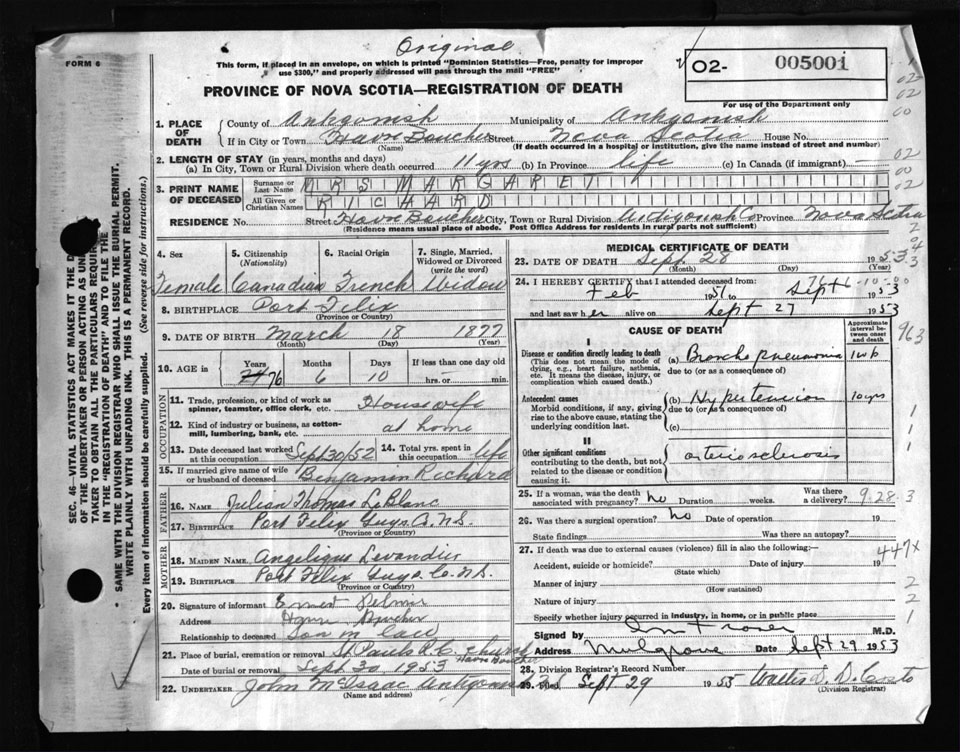 Original
FORM 6
This form, if placed in an envelope, on which is printed "Dominion Statistics—Free, penalty for improper
use $300," and properly addressed will pass through the mail "FREE"
O2- 005001
For use of the Department only
PROVINCE OF NOVA SCOTIA—REGISTRATION OF DEATH
1. PLACE OF DEATH County of Antigonish Municipality of Antigonish
If in City or Town Havre Boucher Street Nova Scotia House No.
(Name) (If death occurred in a hospital or institution, give the name instead of street and number)
2. LENGTH OF STAY (in years, months and days)
(a) In City, Town or Rural Division where death occurred 11 yrs (b) In Province life (c) In Canada (if immigrant) —
3. PRINT NAME OF DECEASED Surname or Last Name MRS MARGARET
All Given or Christian Names RICHARD
RESIDENCE No. Street Havre Boucher City, Town or Rural Division Antigonish Co Province Nova Scotia
(Residence means usual place of abode. Post Office Address for residents in rural parts not sufficient)
4. Sex 5. Citizenship (Nationality) 6. Racial Origin 7. Single, Married, Widowed or Divorced (write the word)
Female Canadian French Widow
8. BIRTHPLACE Port Felix
(Province or Country)
9. DATE OF BIRTH March 18 1877
(Month) (Day) (Year)
10. AGE in Years Months Days If less than one day old
76 6 10 hrs. or min.
OCCUPATION
11. Trade, profession, or kind of work as spinner, teamster, office clerk, etc. Housewife
12. Kind of industry or business, as cotton-mill, lumbering, bank, etc. at home
13. Date deceased last worked at this occupation Sept 30/52 14. Total yrs. spent in this occupation life
15. If married give name of wife or husband of deceased Benjamin Richard
FATHER
16. NAME Julian Thomas LeBlanc
17. BIRTHPLACE Port Felix Guys. Co. N.S.
(Province or Country)
MOTHER
18. MAIDEN NAME Angelique Levandier
19. BIRTHPLACE Port Felix Guys. Co. N.S.
(Province or Country)
20. Signature of informant Ernest
Address Havre Boucher
Relationship to deceased Son in law
21. Place of burial, cremation or removal St. Pauls R.C. Church Havre Boucher
Date of burial or removal Sept 30 1953
22. UNDERTAKER John McIsaac Antigonish
(Name and address)
MEDICAL CERTIFICATE OF DEATH
23. DATE OF DEATH Sept. 28 1953
(Month) (Day) (Year)
24. I HEREBY CERTIFY that I attended deceased from:
Feb 1951 to Sept 1953
and last saw her alive on Sept 27 1953
CAUSE OF DEATH
Approximate interval between onset and death
I
Disease or condition directly leading to death (a) Broncho pneumonia 1 wk
(This does not mean the mode of dying, e.g., heart failure, asthenia, etc. It means the disease, injury, or complication which caused death.)
due to (or as a consequence of)
Antecedent causes (b) Hypertension 10 yrs
Morbid conditions, if any, giving rise to the above cause, stating the underlying condition last.
due to (or as a consequence of)
(c)
II
Other significant conditions arteriosclerosis
contributing to the death, but not related to the disease or condition causing it.
25. If a woman, was the death associated with pregnancy? No Duration weeks. Was there a delivery? 9.28.3
26. Was there a surgical operation? No Date of operation 19
State findings Was there an autopsy?
27. If death was due to external causes (violence) fill in also the following:—
Accident, suicide or homicide? Date of injury 19
(State which)
447x
Manner of injury
(How sustained)
Nature of injury
Specify whether injury occurred in industry, in home, or in public place
Signed by Fraser M.D.
Address Mulgrave Date Sept 29 1953
28. Division Registrar's Record Number
29. Filed Sept 29 1953
(Division Registrar)
963
SEC. 46 VITAL STATISTICS ACT MAKES IT THE D
OF THE UNDERTAKER OR PERSON ACTING AS UN
TAKER TO OBTAIN ALL THE PARTICULARS REQUIR
IN THE "REGISTRATION OF DEATH" AND TO FILE THE
SAME WITH THE DIVISION REGISTRAR WHO SHALL ISSUE THE BURIAL PERMIT.
WRITE PLAINLY WITH UNFADING INK. THIS IS A PERMANENT RECORD.
Every item of information should be carefully supplied. (See reverse side for instructions.)